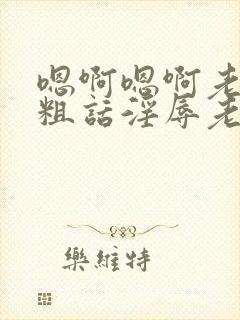 嗯啊嗯啊老
粗話淫辱老
樂維特